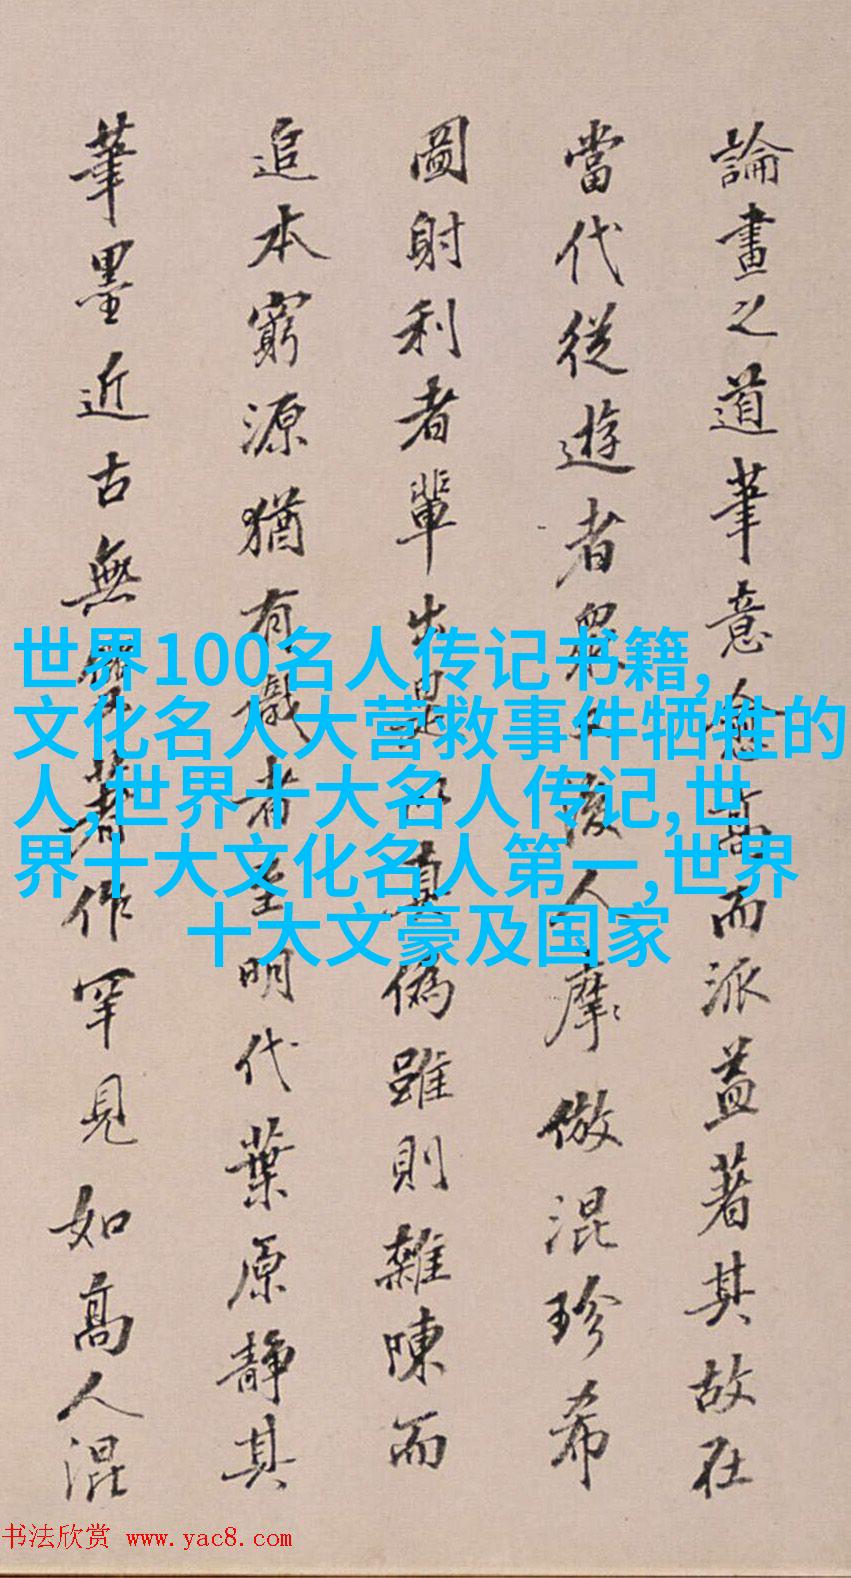 論畫之道筆意愈高而派益著其故在
當代從遊者衆後人摩倣混珍希
圖射利者輩出是以真偽雖則雜陳而
追本窮源猶有識者至明代葉原靜其
筆墨近古無著作罕見如高人混
世界100名人传记书籍,
文化名人大营救事件牺牲的
人,世界十大名人传记,世
界十大文化名人第一,世界
十大文豪及国家
书法欣赏 www.yac8.com